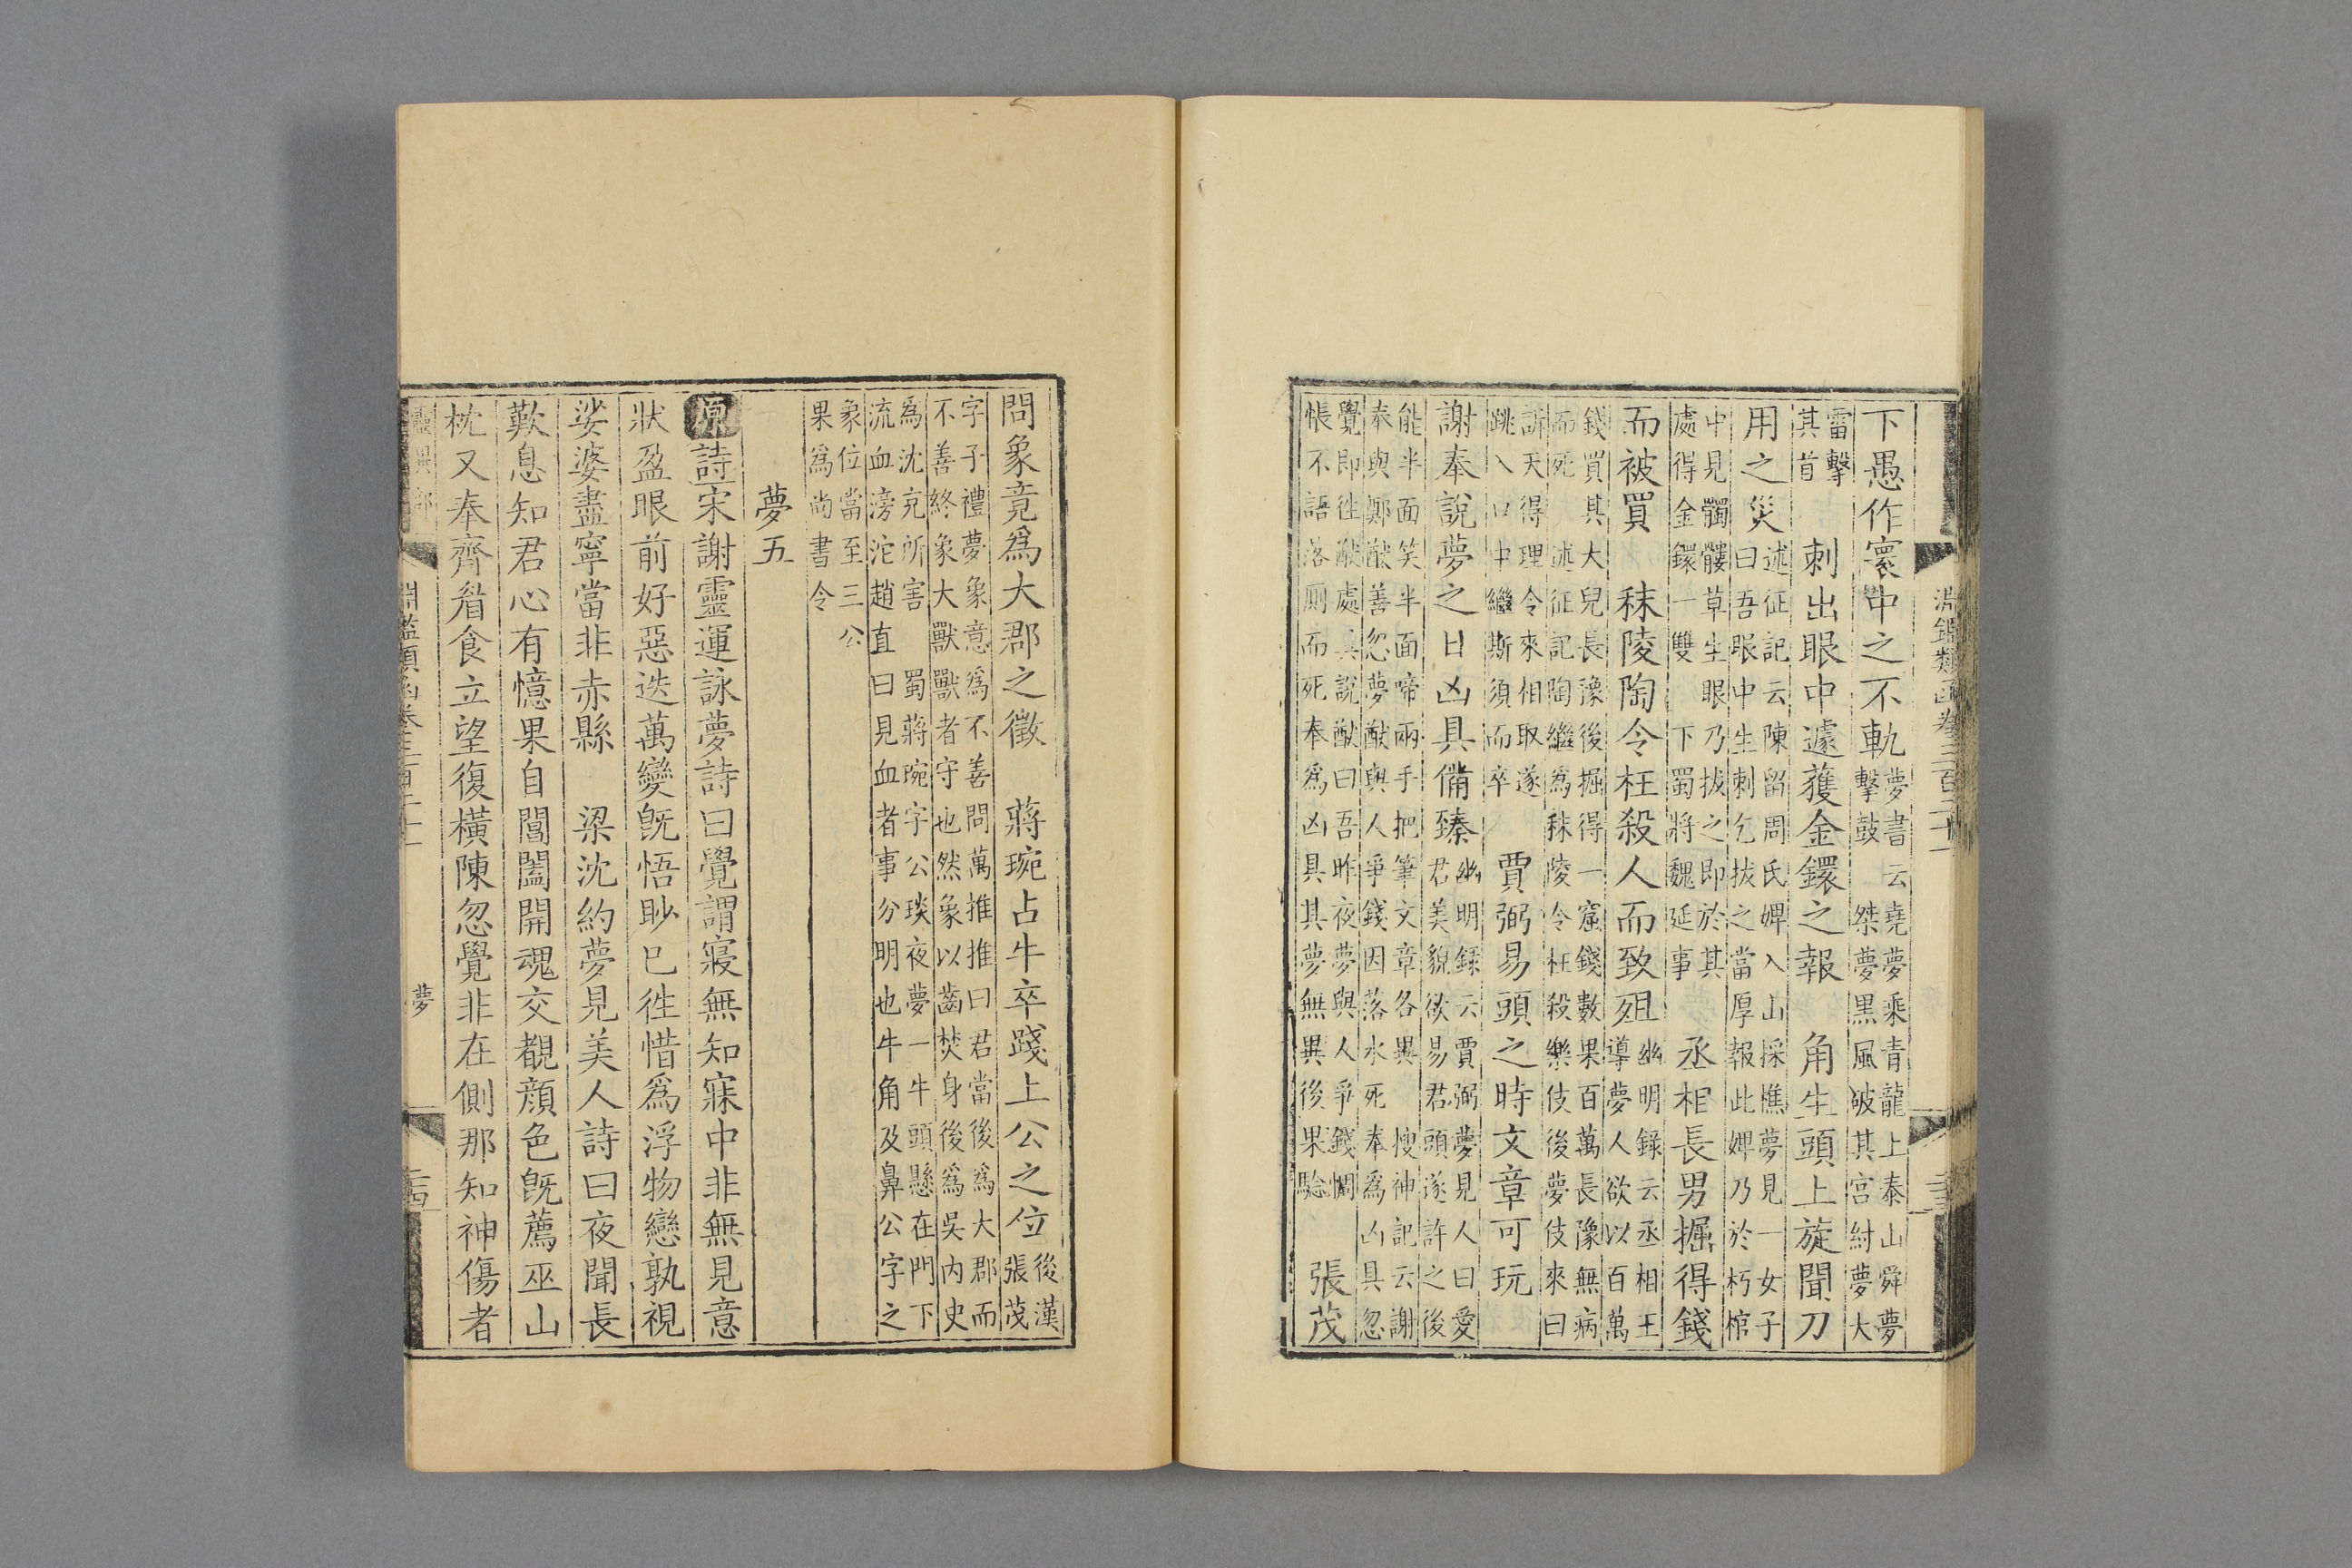 下愚作寰中之不軌夢書云堯夢乘青龍上泰山舜夢擊鼓 桀夢黑風破其宮紂夢大
雷擊其首 刺出眼中遽獲金鐶之報 角生頭上旋聞刀
用之災述征記云陳留周氏婢入山採樵夢見一女子曰吾眼中生刺乞拔之當厚報此婢乃於朽棺
中見髑髏草生眼乃拔之即於其處得金鐶一雙 下蜀將魏延事 丞相長男掘得錢
而被買 秣陵陶令枉殺人而致殂幽明錄云丞相王導夢人欲以百萬
錢買其大兒長豫後掘得一窟錢數果百萬長豫無病而死 述征記陶繼爲秣陵令枉殺樂伎後夢伎來曰
訴天得理令來相取遂跳入口中繼斯須而卒 賈弼易頭之時文章可玩
謝奉說夢之日凶具備臻幽明錄云賈弼夢見人曰愛君美貌欲易君頭遂許之後
能半面笑半面啼兩手把筆文章各異 搜神記云謝奉與鄭猷善忽夢猷與人爭錢因落水死奉爲凶具忽
覺即徃猷處具說猷曰吾昨夜夢與人爭錢惆悵不語落厠而死奉爲凶具其夢無異後果驗 張茂
問象竟爲大郡之徵 蔣琬占牛卒踐上公之位後漢張茂
字子禮夢象意爲不善問萬推推曰君當後爲大郡而不善終象大獸獸者守也然象以齒焚身後爲吳內史
爲沈充所害 蜀蔣琬字公琰夜夢一牛頭懸在門下流血滂沱趙直曰見血者事分明也牛角及鼻公字之
象位當至三公果爲尚書令
夢五
原詩宋謝靈運詠夢詩曰覺謂寢無知寐中非無見意
狀盈眼前好惡迭萬變旣悟眇已徃惜爲浮物戀孰視
娑婆盡寧當非赤縣 梁沈約夢見美人詩曰夜聞長
歎息知君心有憶果自閶闔開魂交覩顏色旣薦巫山
枕又奉齊眉食立望復橫陳忽覺非在側那知神傷者
夢